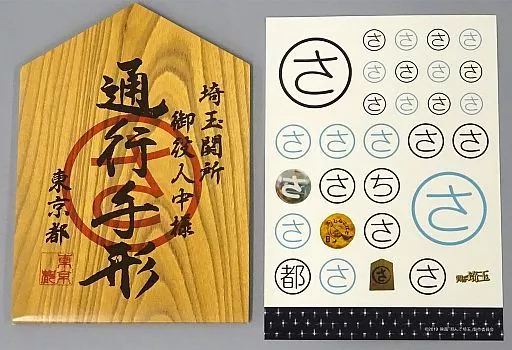 埼玉関所
御役人中様
通行手形
さ
東京都
さ
さ さ さ さ
さ さ さ さ
さ さ さ さ
さ さ さ さ さ
さ さ ち さ
さ さ
都 さ さ さ 翔んで埼玉
©2019 映画「翔んで埼玉」製作委員会